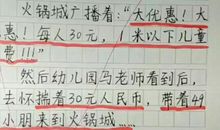 火锅城广播着："大优惠！大
惠！每人30元，1米以下儿童
费！！！"
然后幼儿园马老师看到后，
去怀揣着30元人民币，带着49
小朋来到火锅城……